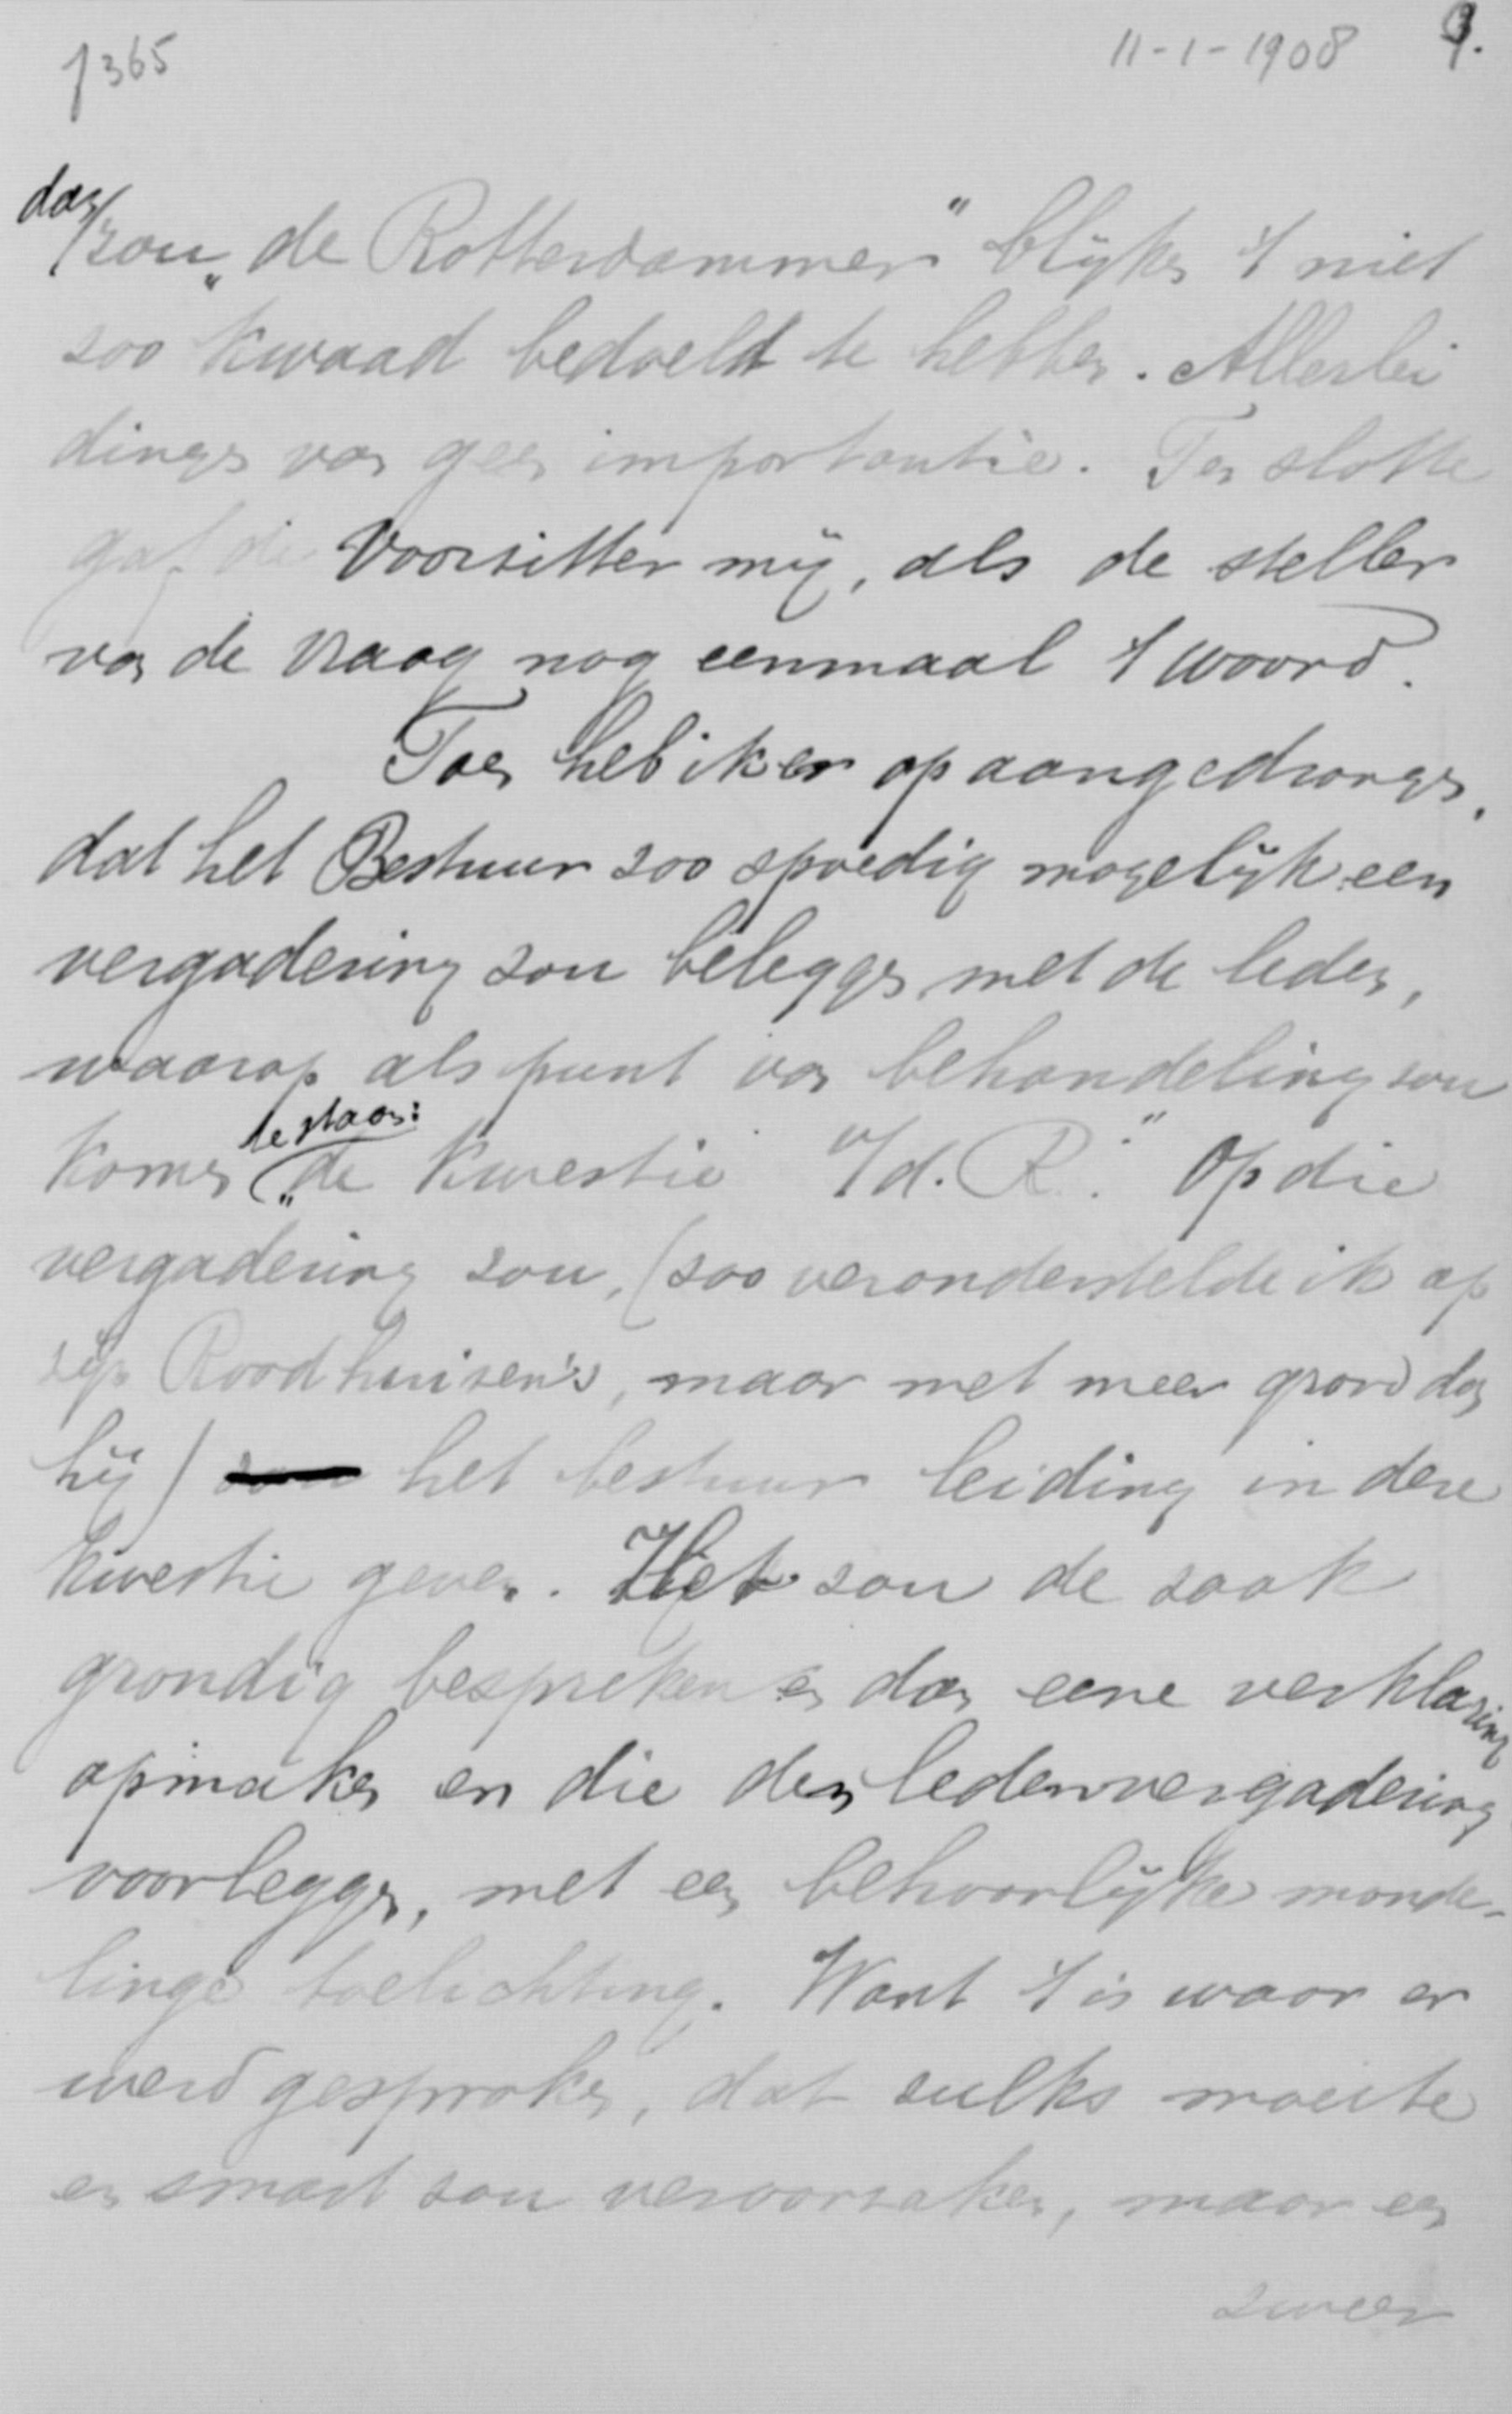 1365 11-1-1908 9.
dan
zou „de Rotterdammer" blijken 't niet
zoo kwaad bedoeld te hebben. Allerlei
dingen van geen importantie. Ten slotte
gaf de Voorzitter mij, als de steller
van de vraag nog eenmaal 't woord.
Toen heb ik er op aangedrongen,
dat het Bestuur zoo spoedig mogelijk een
vergadering zou beleggen met de leden,
waarop als punt van behandeling zou
te staan:
komen „de kwestie v/d. R." Op die
vergadering zou, (zoo veronderstelde ik op
zijn Roodhuizen's, maar met meer grond dan
hij) zou het bestuur leiding in deze
kwestie geven. Het zou de zaak
grondig bespreken en dan eene verklaring
opmaken en die den ledenvergadering
voorleggen, met een behoorlijke monde-
linge toelichting. Want 't is waar er
werd gesproken, dat zulks moeite
en smart zou veroorzaken, maar een
zweer